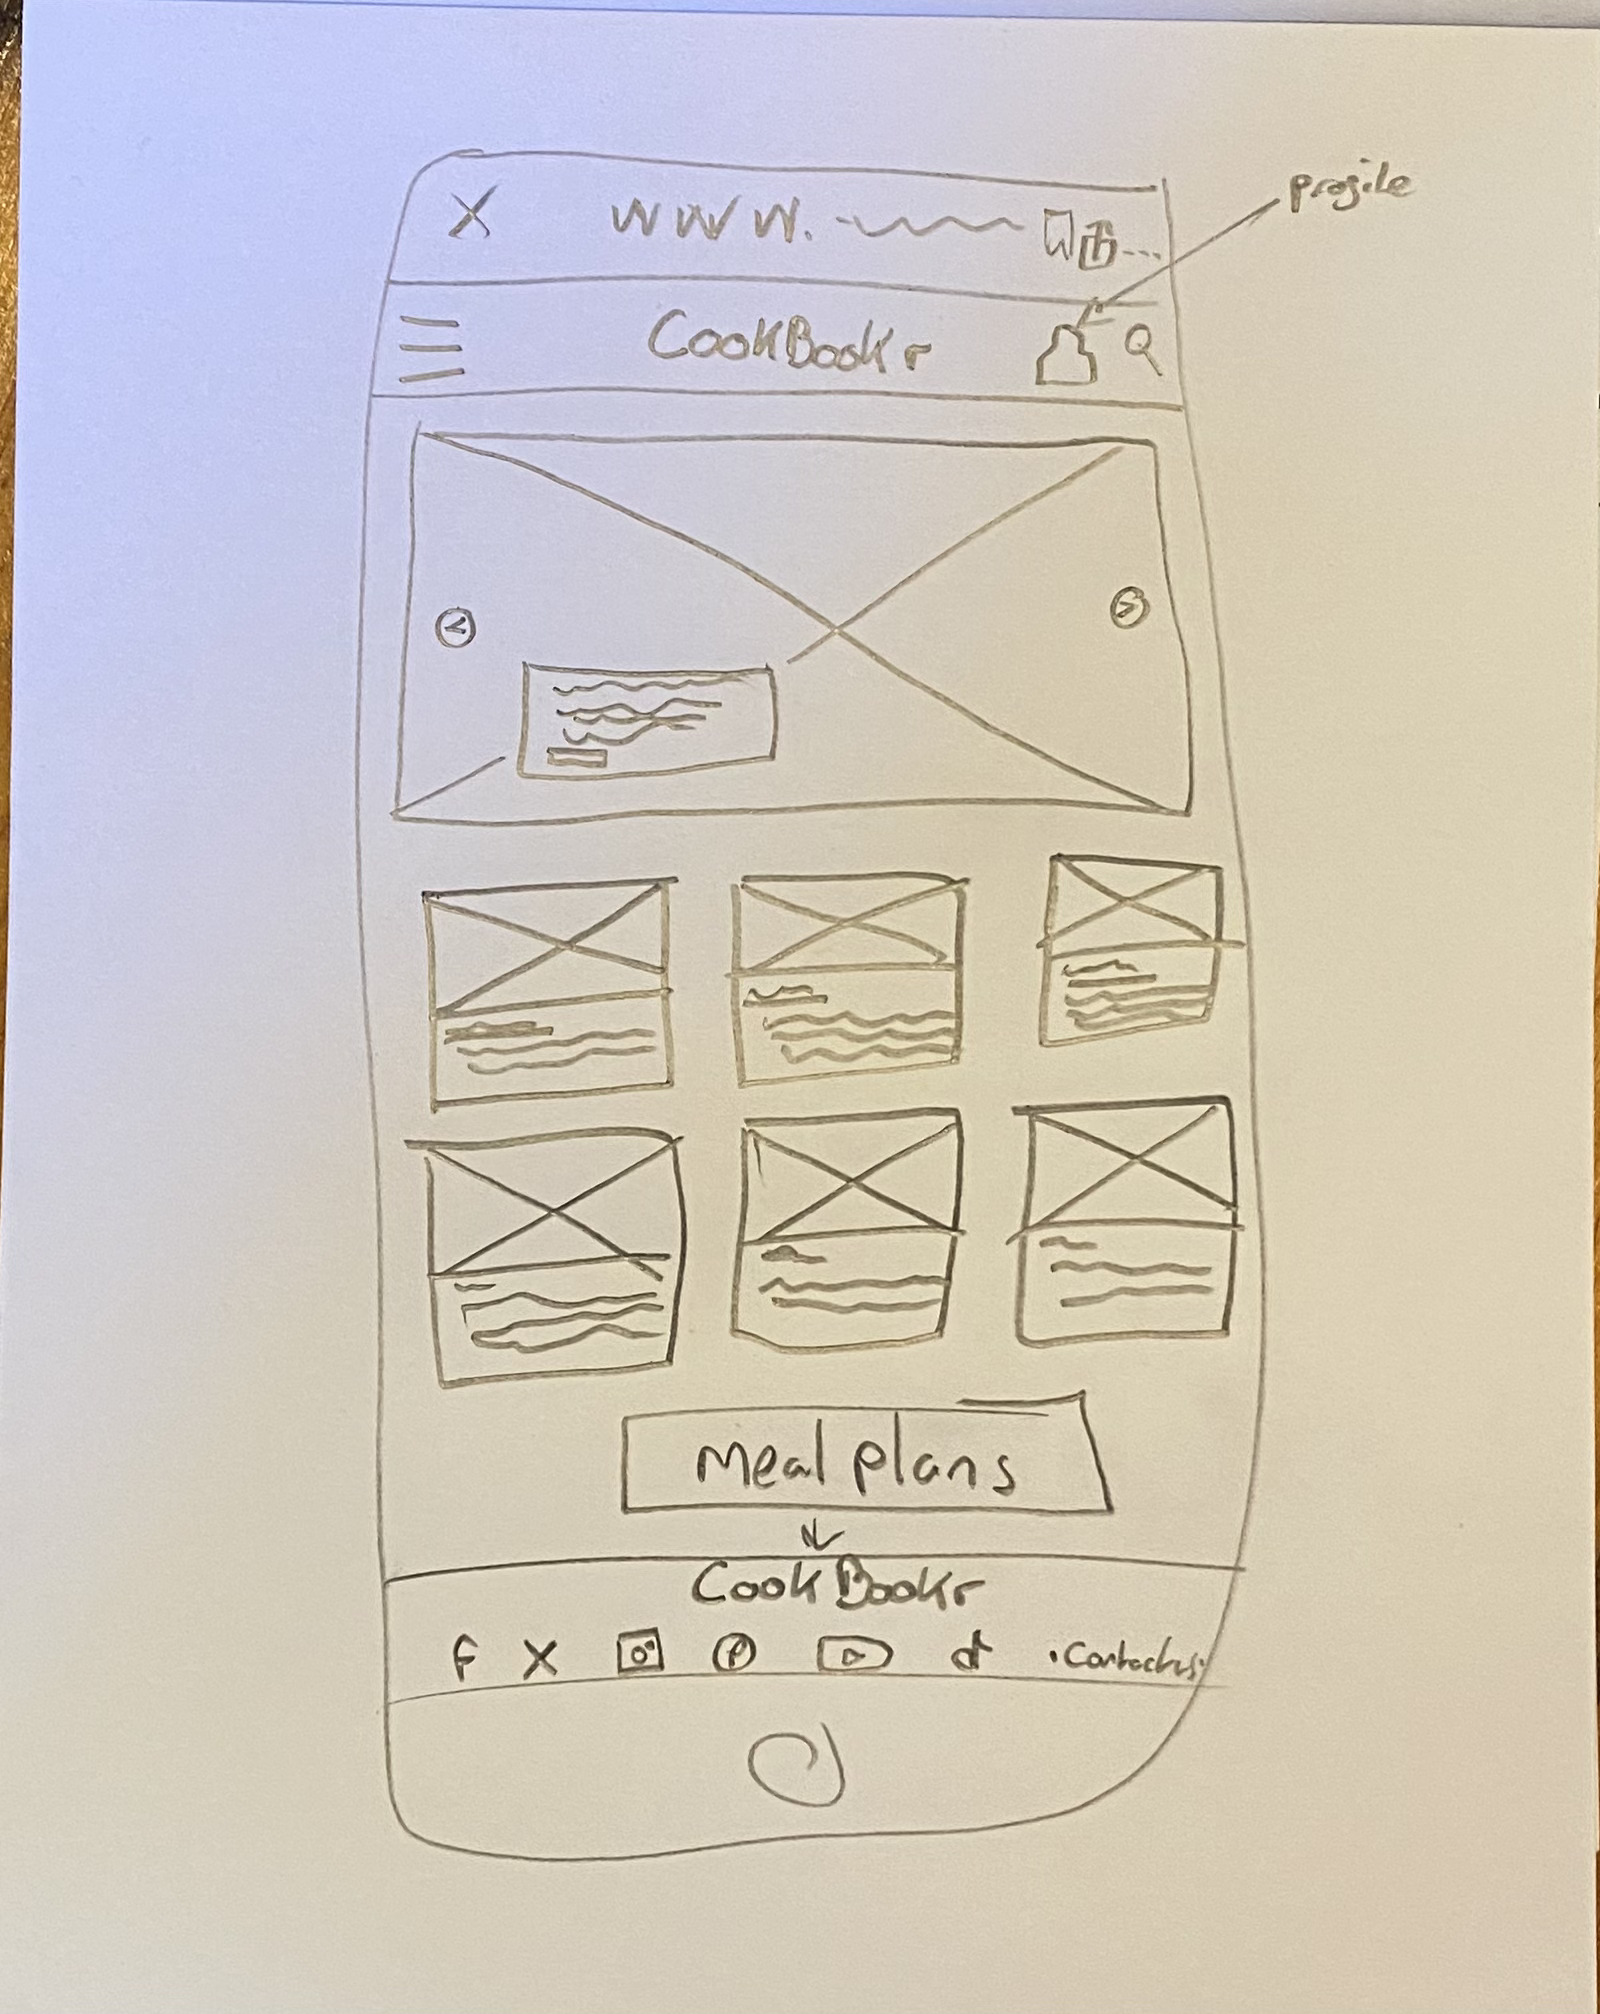 profile
X www.
CookBookr
Meal plans
CookBookr
f X P
• Contact us •